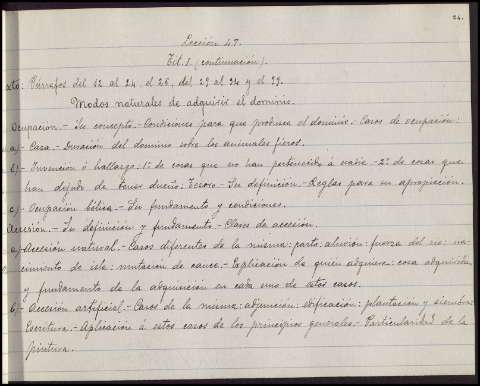 24.
Lección 47.
Tít. I (continuación).
xto: Párrafos del 12 al 24, el 26, del 29 al 34 y el 39.
Modos naturales de adquirir el dominio.
Ocupacion.- Su concepto.- Condiciones para que produzca el dominio.- Casos de ocupación:
a)- Caza.- Duración del dominio sobre los animales fieros.
b)- Invención ó hallazgo: 1º de cosas que no han pertenecido á nadie.- 2º de cosas que
han dejado de tener dueño: Tesoro.- Su definición.- Reglas para su apropiación.
c)- Ocupación bélica.- Su fundamento y condiciones.
Accesión.- Su definición y fundamento.- Clases de accesión.
a)- Accesión natural.- Casos diferentes de la misma: parto: aluvión: fuerza del río: na-
cimiento de isla: mutación de cauce.- Explicación de quién adquiere: cosa adquirida
y fundamento de la adquisición en cada uno de estos casos.
b)- Accesión artificial.- Casos de la misma: adjunción: edificación: plantación y siembra:
Escritura.- Aplicación á estos casos de los principios generales.- Particularidad de la
pintura.